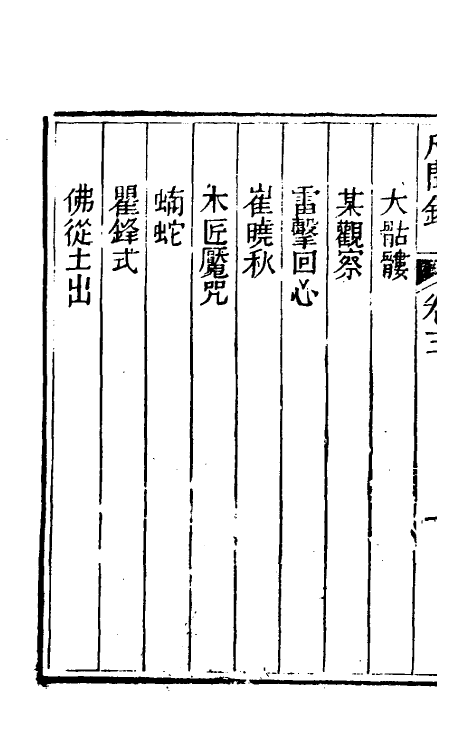 大骷髏
某觀察
雷擊回心
崔曉秋
木匠魘咒
蝻蛇
瞿鋒式
佛從土出